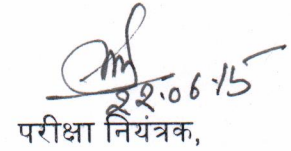 22.06.15
परीक्षा नियंत्रक,